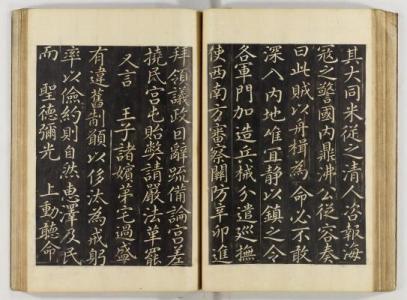 其大同米從之清人咨報海
寇之警國內鼎沸公從容奏
曰此賊以舟楫為命必不敢
深入內地唯宜靜以鎮之令
各軍門加造兵械分遣巡撫
使西南方審察關防辛卯進
拜領議政因辭疏備論宮差
撓民宮屯貽弊請嚴法革罷
又言 王子諸嬪第宅過盛
有違舊制願以侈汰為戒躬
率以儉約則自然惠澤及民
而 聖德彌光 上動聽命